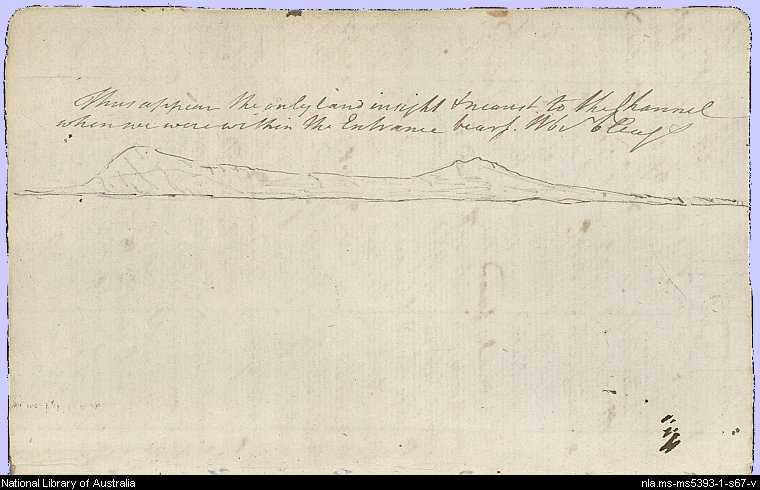 Thus appear the only land insight & nearest to the Channel
when we were within the Entrance bearg. WbN 6 Leags
National Library of Australia
nla.ms-ms5393-1-s67-v